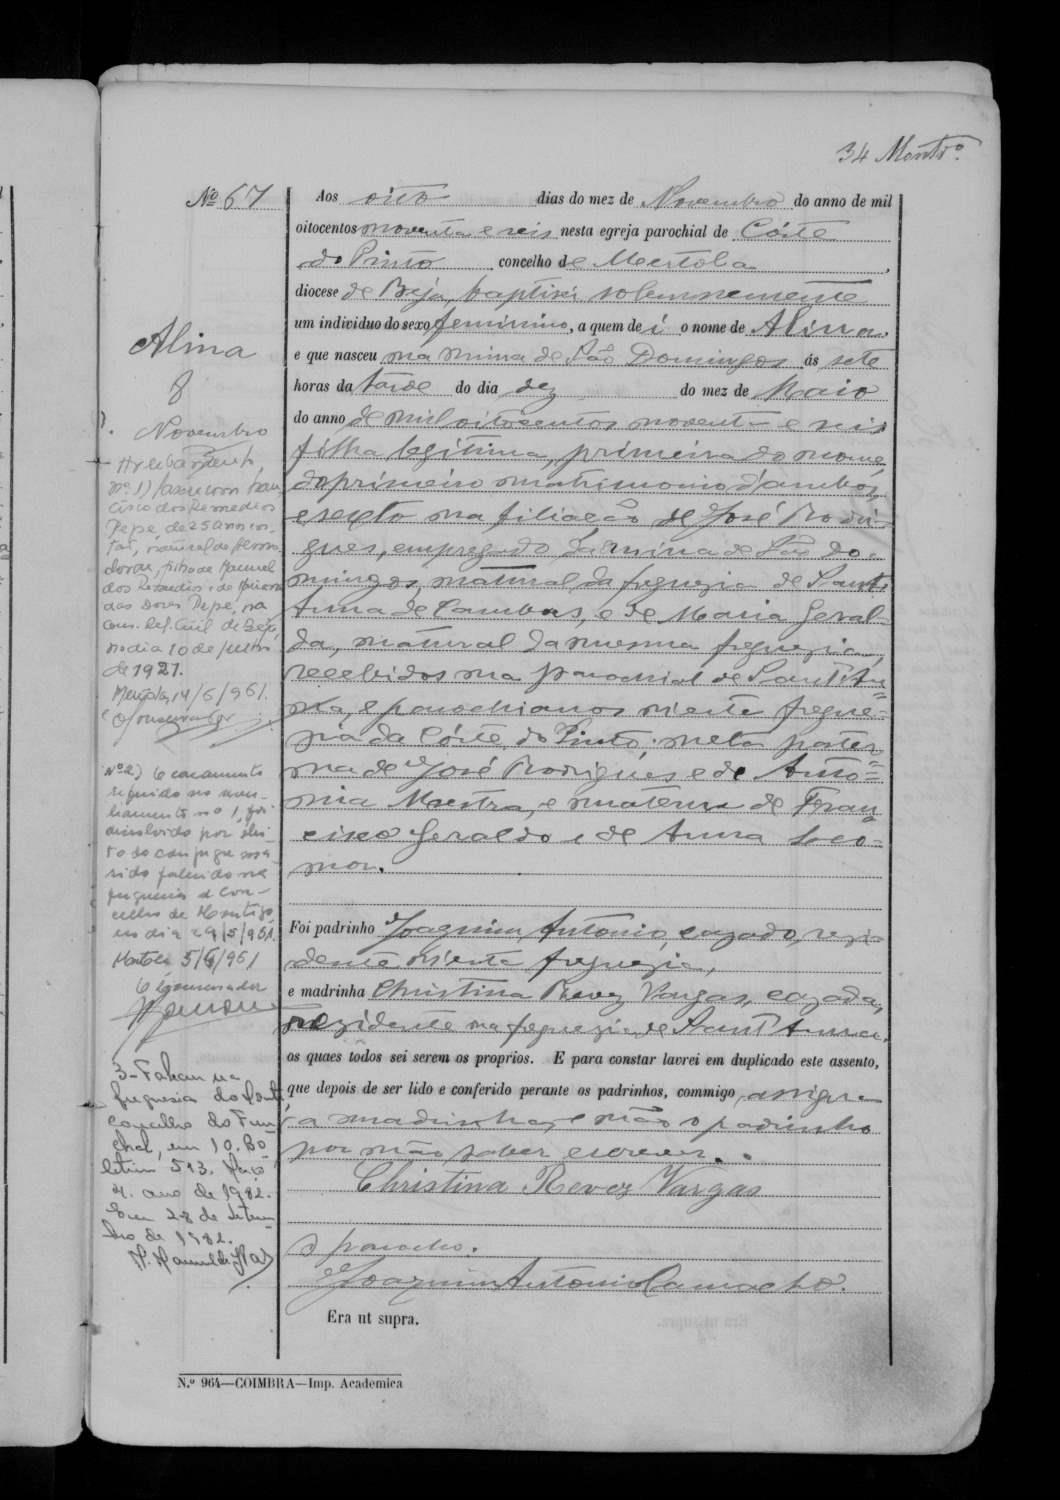 34 Montro.
Nº 67
Aos oito dias do mez de Novembro do anno de mil
oitocentos noventa e seis nesta egreja parochial de Córte
do Pinto concelho de Mertola,
diocese de Beja, baptisei solemnemente
um individuo do sexo feminino, a quem dei o nome de Alina,
e que nasceu na mina de São Domingos ás sete
horas da tarde do dia dez do mez de Maio
do anno de mil oitocentos noventa e seis
filha legitima, primeira do nome,
do primeiro matrimonio d'ambos,
e sexto na filiação de José Rodri-
gues, empregado na mina de São Do-
mingos, natural da freguezia de Sant'
Anna de Cambas, e de Maria Geral-
da, natural da mesma freguezia,
recebidos na parochial de Sant'An-
na, e parochianos n'esta fregue-
zia da Córte do Pinto; neta pater-
na de José Rodrigues e de Anto-
nia Mestra, e materna de Fran-
cisco Geraldo e de Anna
Foi padrinho Joaquim Antonio, cazado, rezi-
dente n'esta freguezia,
e madrinha Christina Revez Vargas, cazada,
rezidente na freguezia de Sant'Anna,
os quaes todos sei serem os proprios. E para constar lavrei em duplicado este assento,
que depois de ser lido e conferido perante os padrinhos, commigo, assigna
a madrinha, e não o padrinho
por não saber escrever.
Christina Revez Vargas
O parocho.
Joaquim Antonio Camacho.
Era ut supra.
N.º 964—COIMBRA—Imp. Academica
Alina
8
Novembro
nº 1)
cisco dos Remedios
Pepe, de 25 annos
natural de
filho de Manuel
dos Remedios e de
das Dores Pepe, na
Con. Reg. Civil de Beja,
no dia 10 de
de 1921.
Mertola, 14/6/961.
O Conservador
Nº 2) O casamento
referido no aver-
bamento nº 1, foi
dissolvido por óbi-
to do conjuge ma-
rido falecido na
freguesia e con-
celho de Montijo,
no dia 29/5/951.
Mertola 5/6/961
O Conservador
3- Faleceu na
freguesia do
concelho do Fun-
chal, em 10. Bo-
letim 513. Maço
4. ano de 1982.
Em 28 de Setem-
bro de 1982.